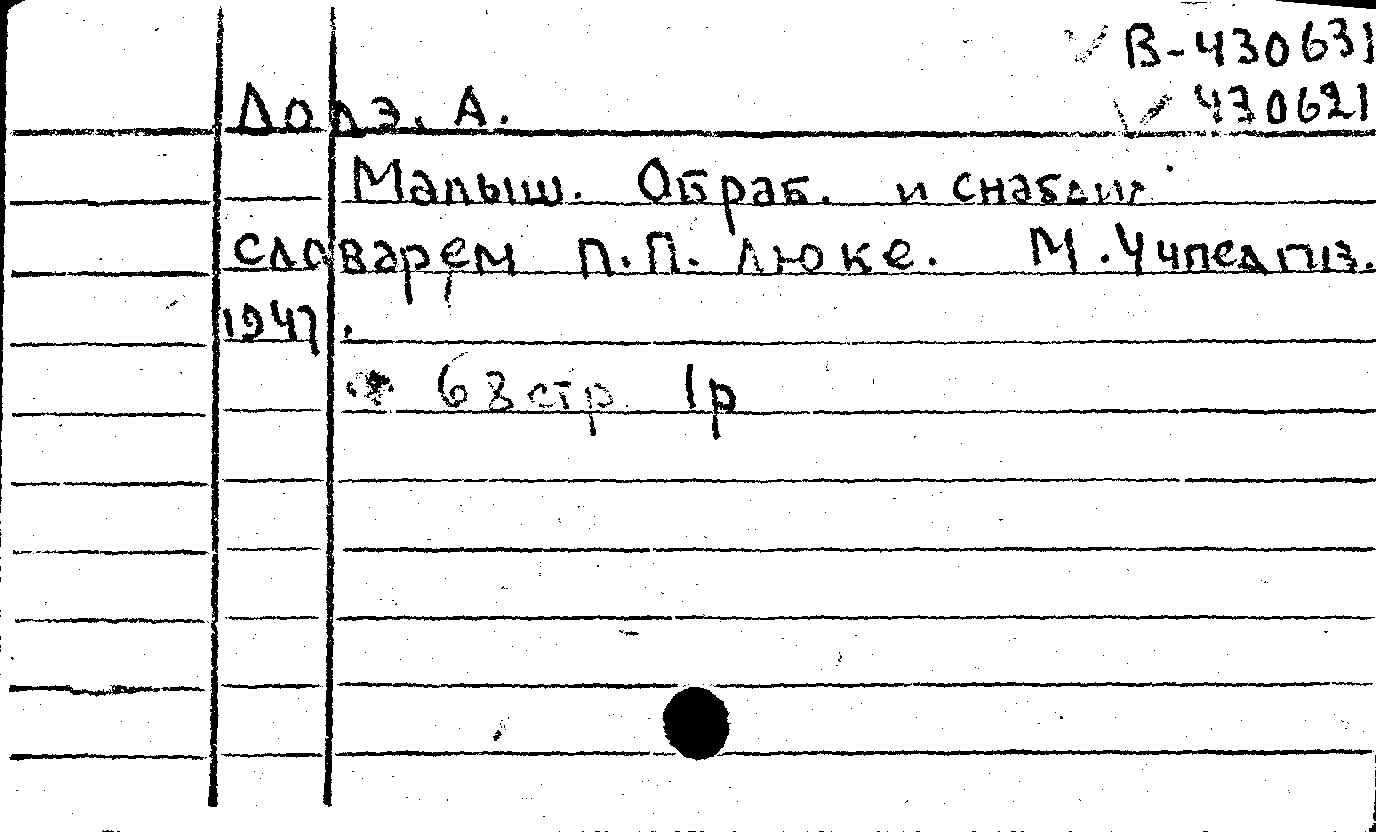 В-430631
Додэ. А. 430621
Малыш. Обраб. и снабдил
словарем П.П. Люке. М. Учпедгиз.
1947.
68 стр 1р